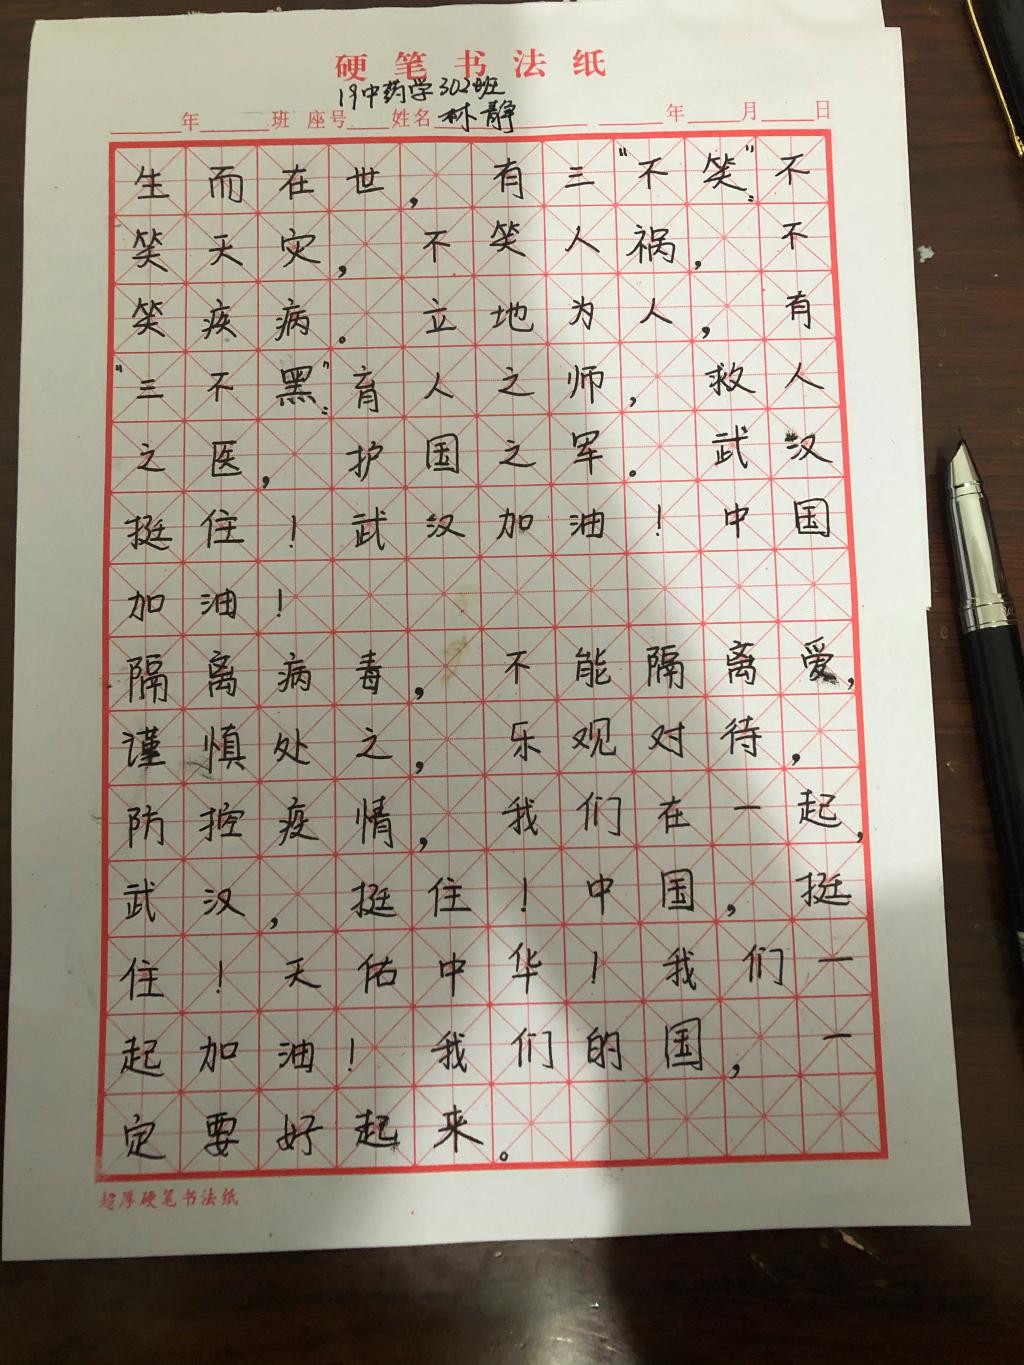 硬笔书法纸
19中药学302班
年 班 座号 姓名 林静 年 月 日
生而在世，有三“不笑”：不
笑天灾，不笑人祸，不
笑疾病。立地为人，有
“三不黑”：育人之师，救人
之医，护国之军。武汉
挺住！武汉加油！中国
加油！
隔离病毒，不能隔离爱，
谨慎处之，乐观对待，
防控疫情，我们在一起，
武汉，挺住！中国，挺
住！天佑中华！我们一
起加油！我们的国，一
定要好起来。
超厚硬笔书法纸